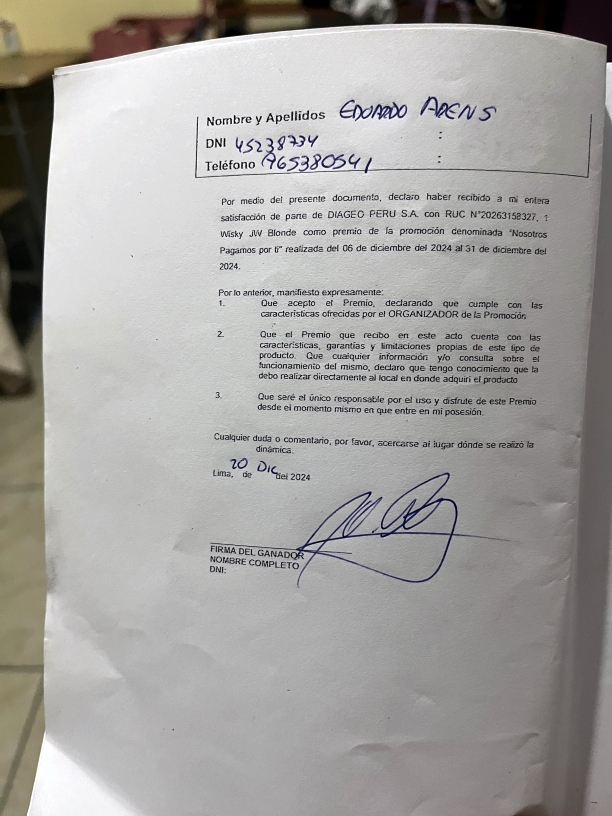 Nombre y Apellidos EDUARDO ARENS
DNI 45238734 :
Teléfono 965380541 :
Por medio del presente documento, declaro haber recibido a mi entera
satisfacción de parte de DIAGEO PERU S.A. con RUC N°20263158327, 1
Wisky JW Blonde como premio de la promoción denominada "Nosotros
Pagamos por ti" realizada del 06 de diciembre del 2024 al 31 de diciembre del
2024.
Por lo anterior, manifiesto expresamente:
1. Que acepto el Premio, declarando que cumple con las
características ofrecidas por el ORGANIZADOR de la Promoción.
2. Que el Premio que recibo en este acto cuenta con las
características, garantías y limitaciones propias de este tipo de
producto. Que cualquier información y/o consulta sobre el
funcionamiento del mismo, declaro que tengo conocimiento que la
debo realizar directamente al local en donde adquirí el producto
3. Que seré el único responsable por el uso y disfrute de este Premio
desde el momento mismo en que entre en mi posesión.
Cualquier duda o comentario, por favor, acercarse al lugar dónde se realizó la
dinámica.
Lima, 20 de DIC del 2024
FIRMA DEL GANADOR
NOMBRE COMPLETO
DNI: